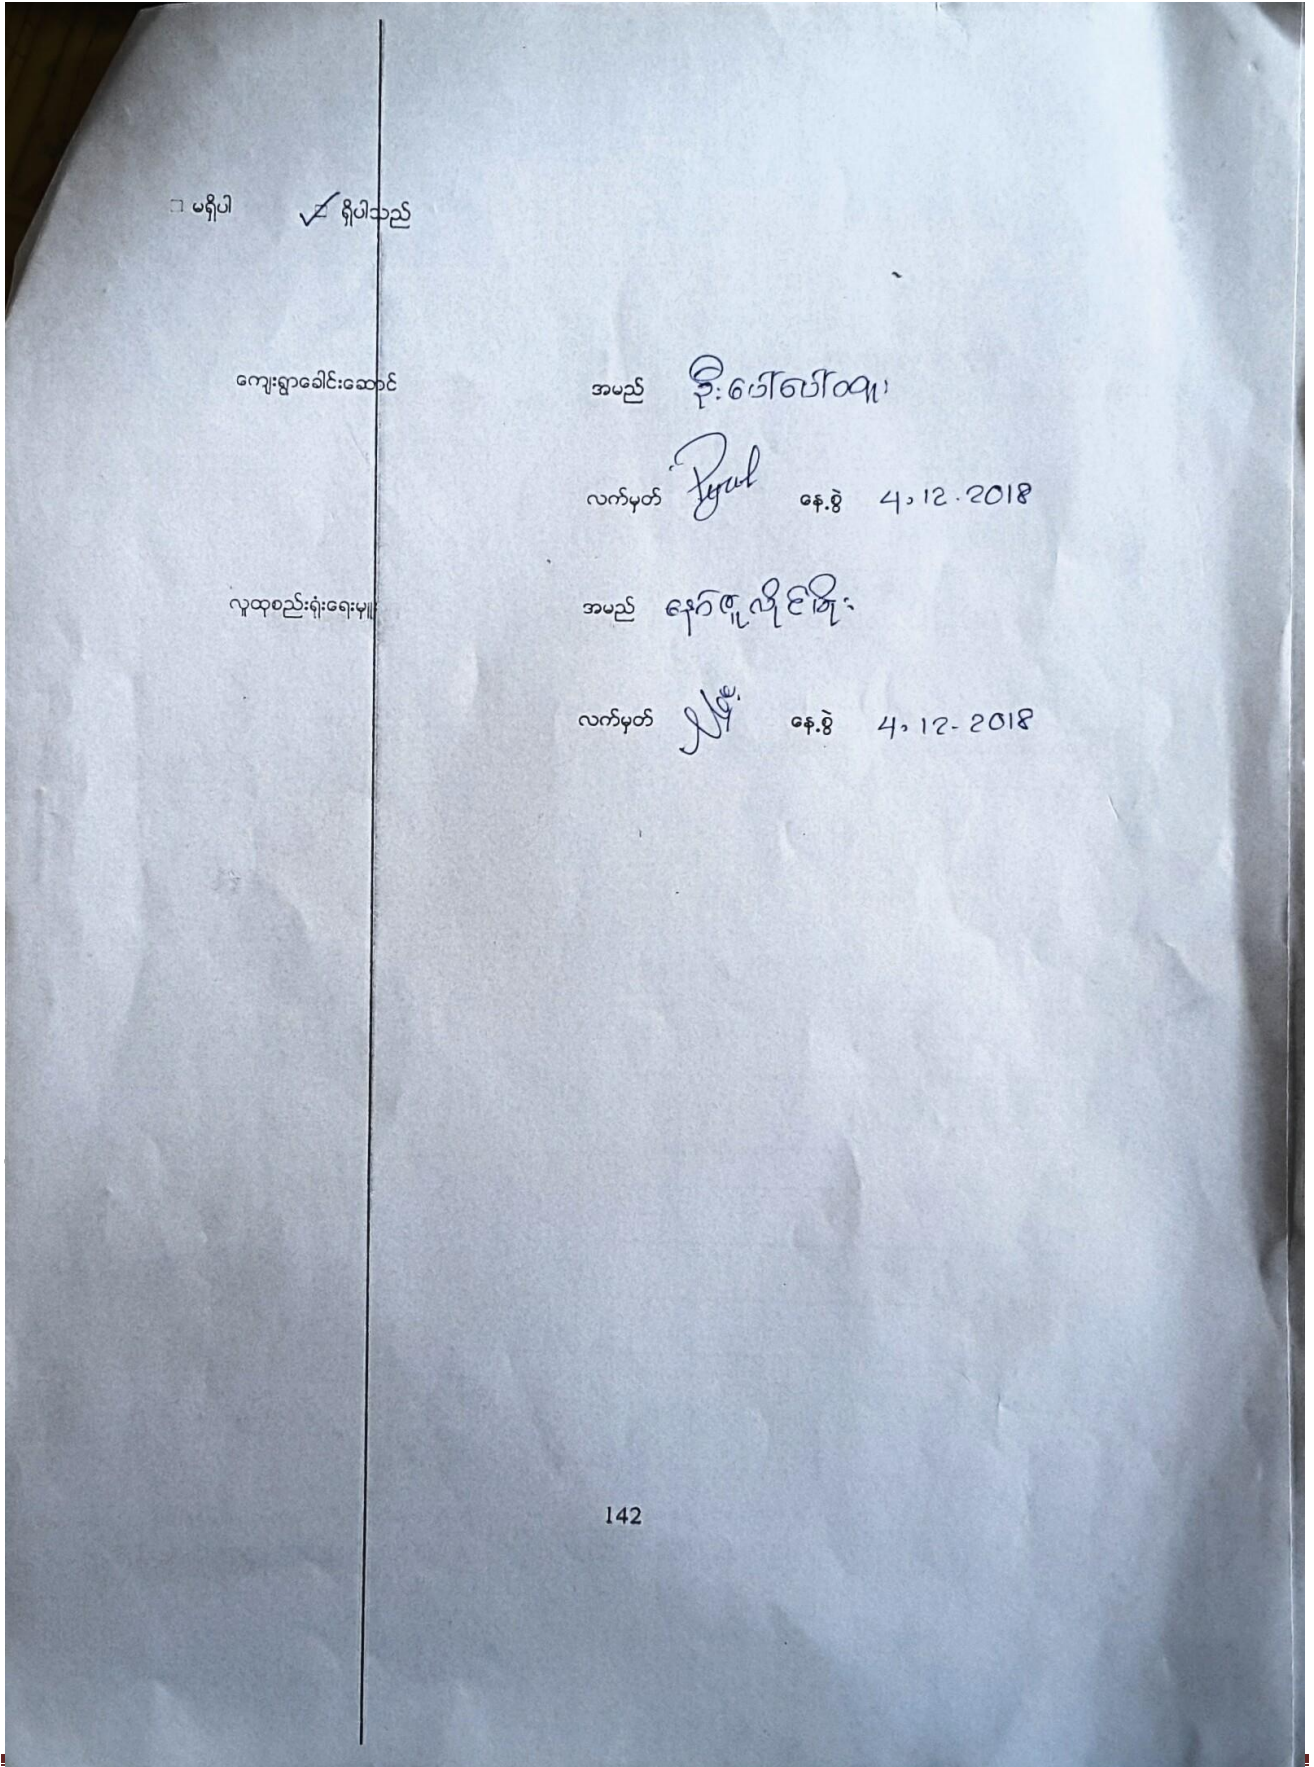 □ မရှိပါ ✓ □ ရှိပါသည်
ကျေးရွာခေါင်းဆောင် အမည် ဦးပေါ်ပေါ်ထူး
လက်မှတ် နေ့စွဲ 4.12.2018
လူထုစည်းရုံးရေးမှူး အမည် နော်ဇူလိုင်ဖြိုး
လက်မှတ် နေ့စွဲ 4.12-2018
142